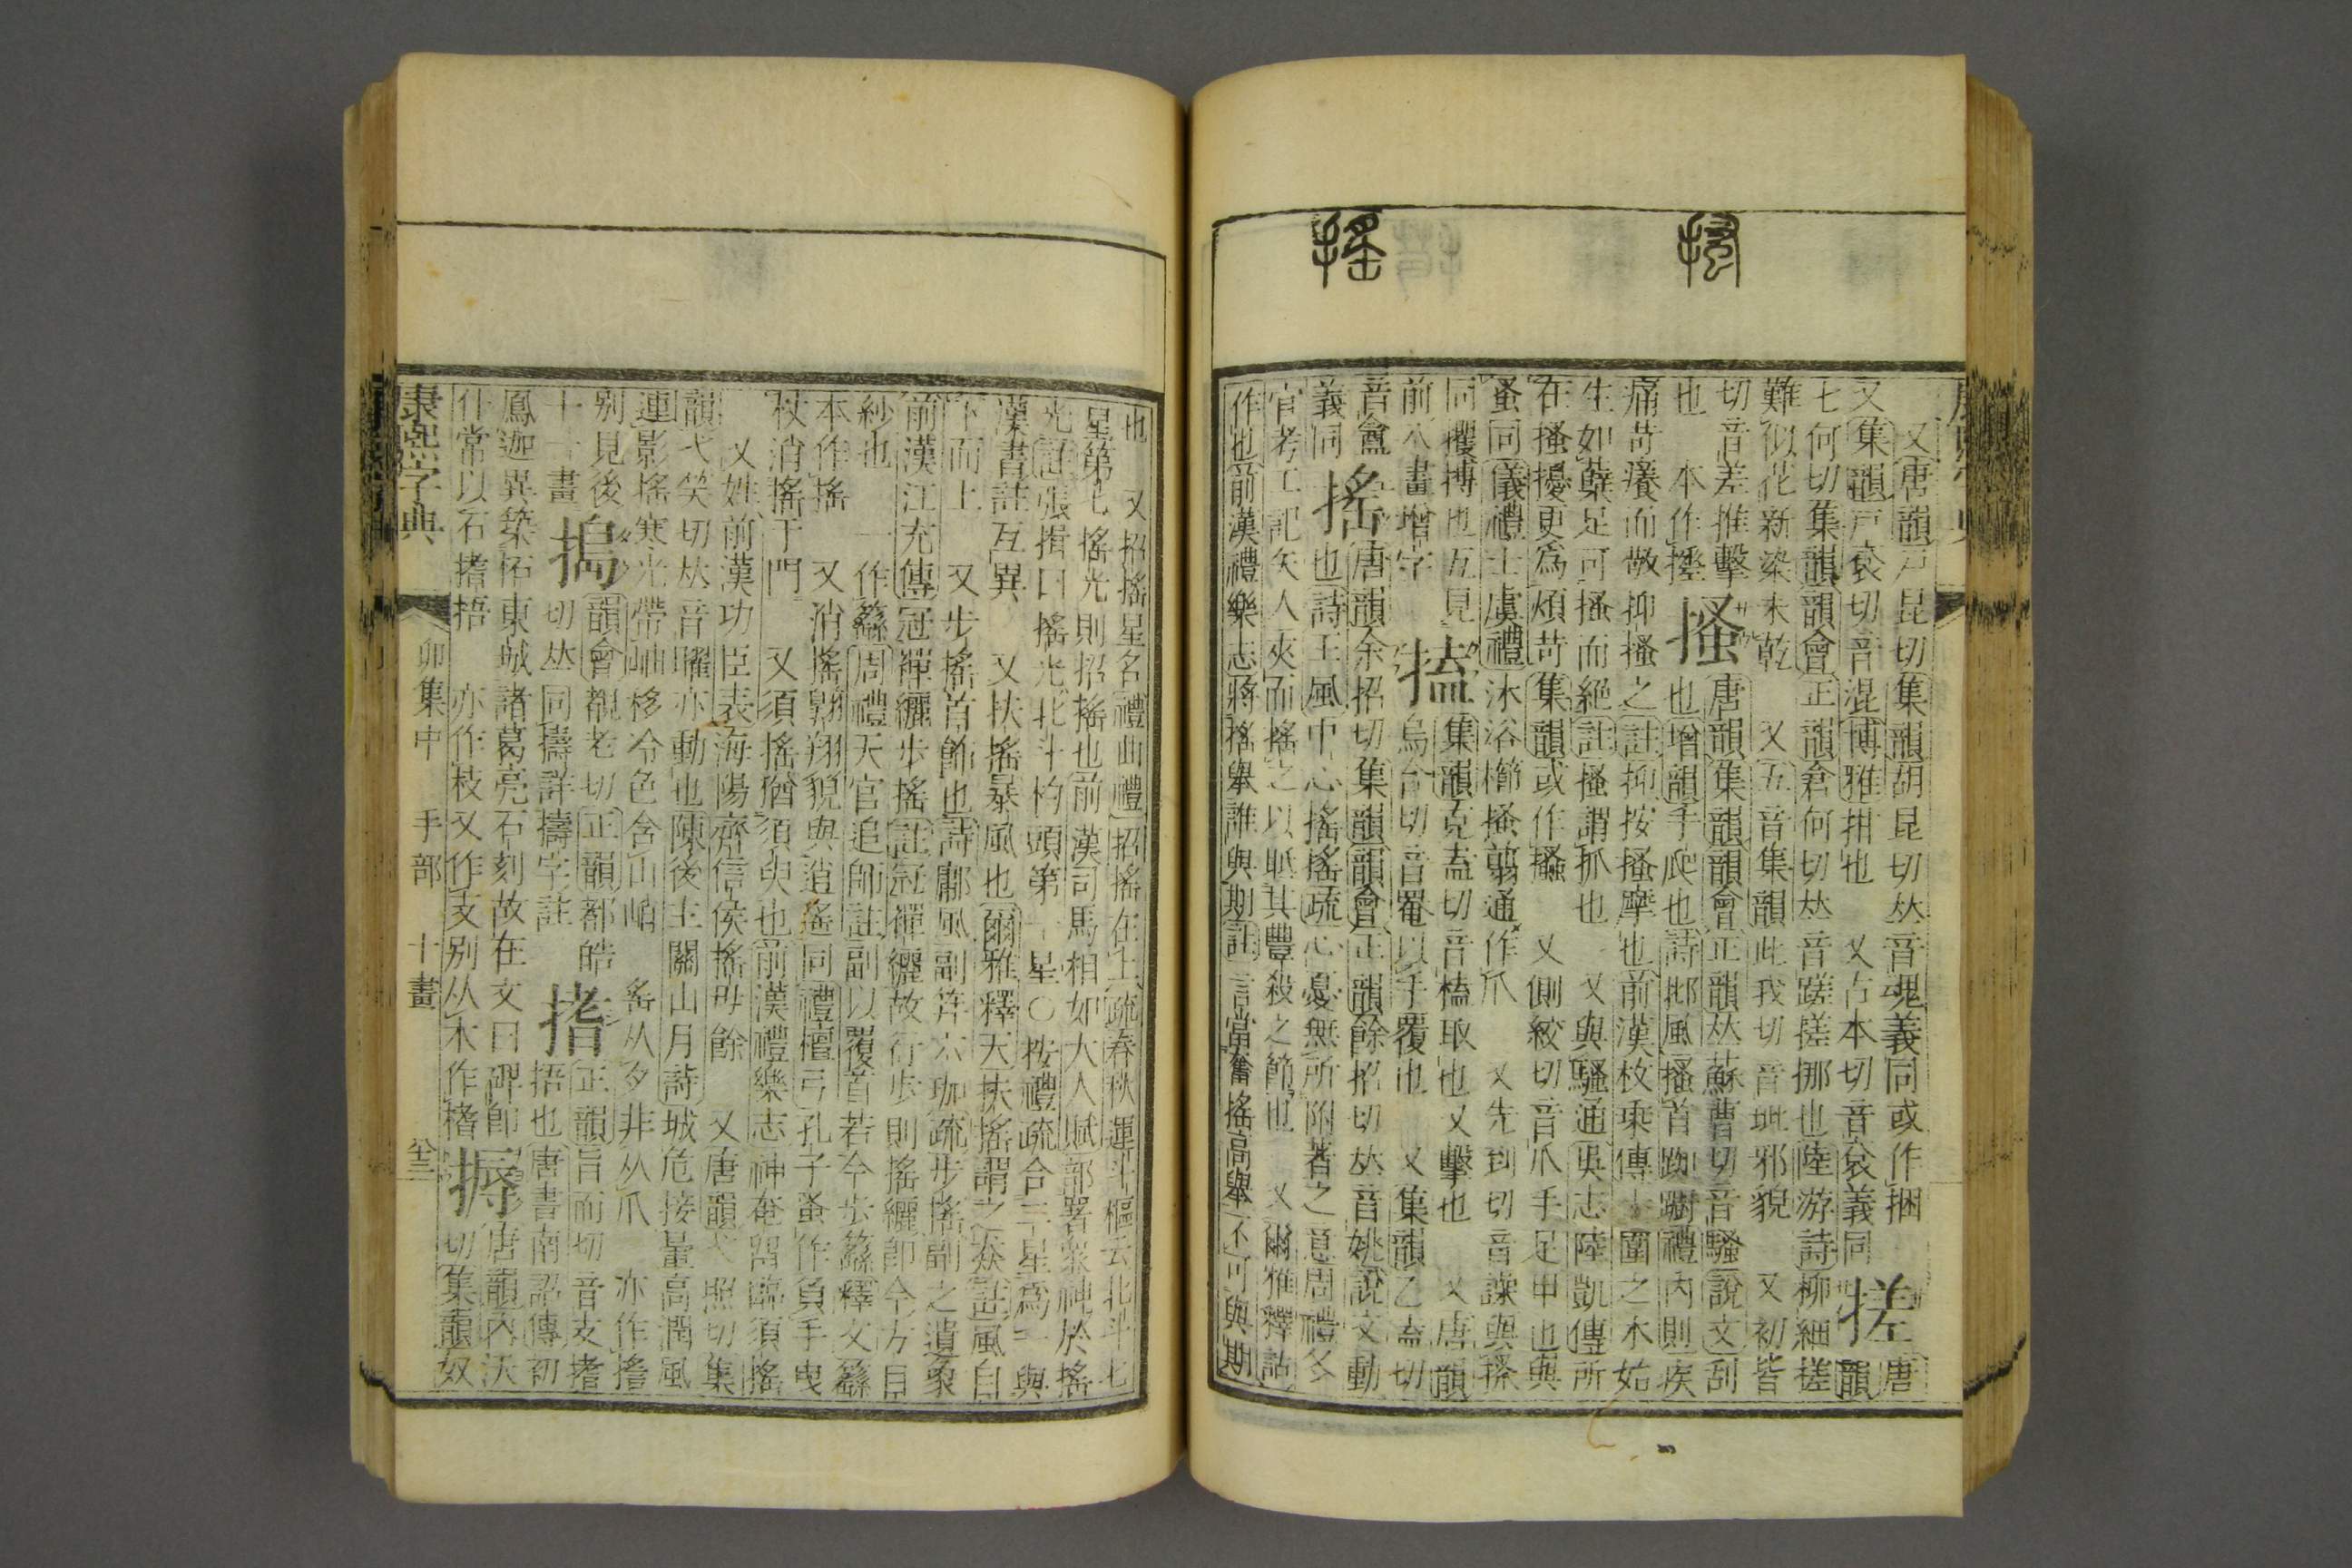 搔
搖
又唐韻戸昆切集韻胡昆切𠀤音魂義同或作捆 搓 唐
又集韻戸袞切音混博雅拑也 又古本切音袞義同 韻
七何切集韻韻會正韻倉何切𠀤音蹉搓挪也陸游詩柳細搓
難似花新染未乾 又五音集韻此我切音玼邪貌 又初皆
切音差推擊 搔 唐韻集韻韻會正韻𠀤蘇曹切音騷說文刮
也 本作㨰 也增韻手爬也詩邶風搔首踟躕禮內則疾
痛苛癢而敬抑搔之註抑按搔摩也前漢枚乘傳十圍之木始
生如蘗足可搔而絕註搔謂抓也 又與騷通吳志陸凱傳所
在搔擾更爲煩苛集韻或作 又側絞切音爪手足甲也與
蚤同儀禮士虞禮沐浴櫛搔翦通作爪 又先到切音譟與
同 搏也互見 搕 集韻克盍切音榼取也 又擊也 又唐韻
前八畫增字 烏合切音罨以手覆也 又集韻乙盍切
音盦 搖 唐韻余招切集韻韻會正韻餘招切𠀤音姚說文動
義同 也詩王風中心搖搖疏心憂無所附著之意周禮冬
官考工記矢人夾而搖之以眡其豐殺之節也 又爾雅釋詁
作也前漢禮樂志將搖舉誰與期註言當奮搖高舉不可與期
也 又招搖星名禮曲禮招搖在上疏春秋運斗樞云北斗七
星第七搖光則招搖也前漢司馬相如大人賦部署衆神於搖
光註張揖曰搖光北斗杓頭第一星○按禮疏合二星爲一與
漢書註互異 又扶搖暴風也爾雅釋天扶搖謂之猋註風自
下而上 又步搖首飾也詩鄘風副笄六珈疏步搖副之遺象
前漢江充傳冠襌纚步搖註冠襌纚故行步則搖纚卽今方目
紗也 一作繇周禮天官追師註副以覆首若今步繇釋文繇
本作搖 又消搖翱翔貌與逍遙同禮檀弓孔子蚤作負手曳
杖消搖于門 又須搖猶須臾也前漢禮樂志神奄留臨須搖
又姓前漢功臣表海陽齊信侯搖毋餘 又唐韻弋照切集
韻弋笑切𠀤音曜亦動也陳後主關山月詩城危接暈高閏風
連影搖寒光帶岫移冷色含山峭 䍃从夕非从爪 亦作㨱
別見後 搗 韻會覩老切正韻都皓 揸 正韻旨而切音支搘
十一畫 切𠀤同擣詳擣字註 捂也唐書南詔傳初
鳳迦異築拓東城諸葛亮石刻故在文曰碑卽 唐韻 沃
什常以石搘捂 亦作枝又作支別从木作榰 搙 切集韻奴
康熙字典 卯集中 手部 十畫